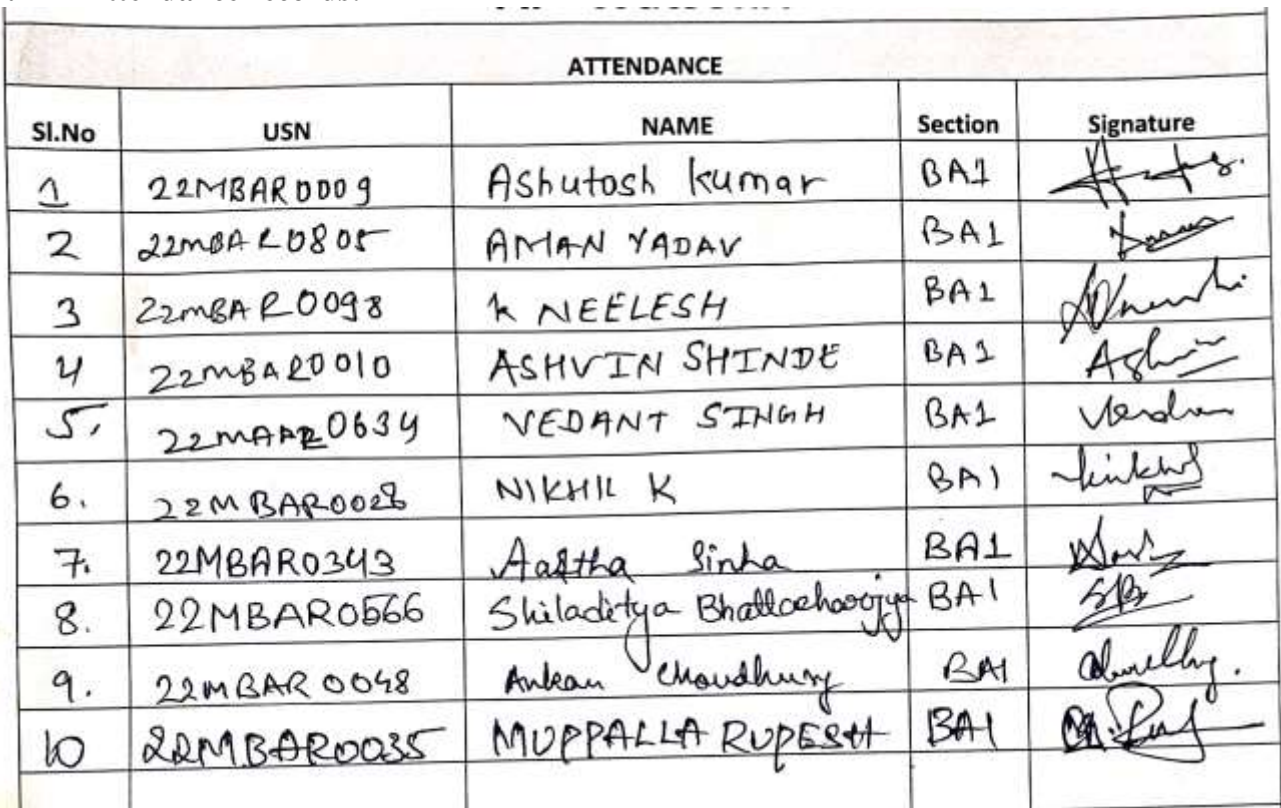 ATTENDANCE
Sl.No USN NAME Section Signature
1 22MBAR0009 Ashutosh kumar BA1
2 22MBAR0805 AMAN YADAV BA1
3 22MBAR0098 K NEELESH BA1
4 22MBAR0010 ASHVIN SHINDE BA1 Ashvin
5. 0634 VEDANT SINGH BA1
6. 22MBAR0028 NIKHIL K BA1
7. 22MBAR0343 Aastha Sinha BA1
8. 22MBAR0566 Shiladitya Bhattacharjya BA1 SB
9. 22MBAR0048 Ankan Choudhury BA1
10 22MBAR0035 MUPPALLA RUPESH BA1